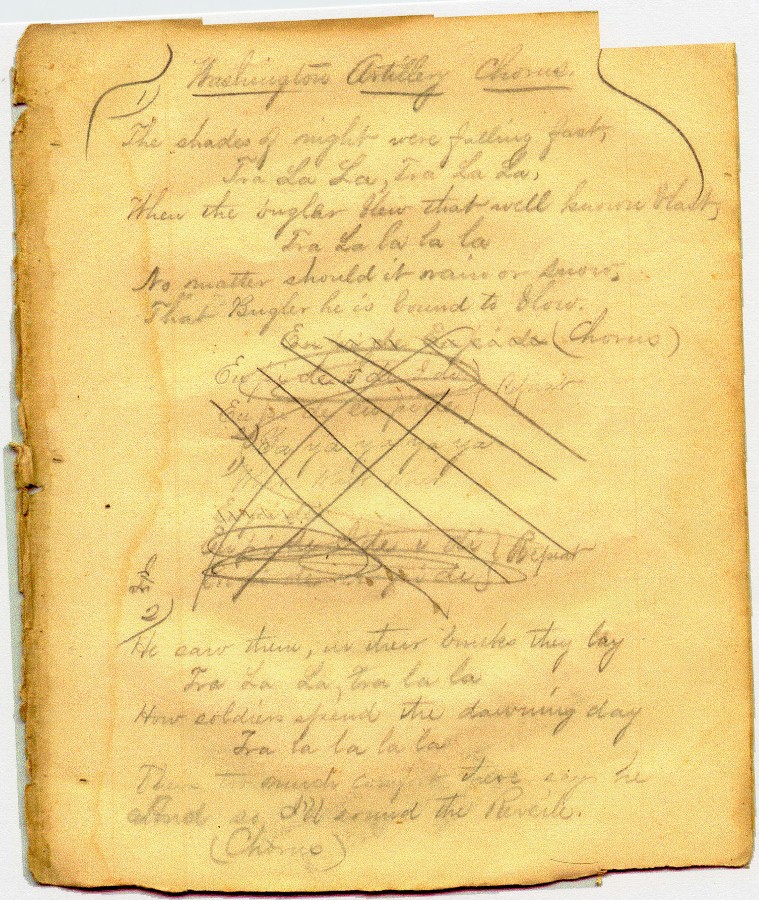 Washington Artillery Chorus.
1)
The shades of night were falling fast,
Tra La La, Tra La La,
When the bugler blew that well known blast,
Tra La la la la
No matter should it rain or snow,
That Bugler he is bound to blow.
(Chorus)
Repeat
ya ya ya ya
Repeat
2)
He saw them, in their bunks they lay
Tra La La, tra la la
How soldiers spend the dawning day
Tra la la la la
much comfort there says he
And so I'll sound the Reveile.
(Chorus)